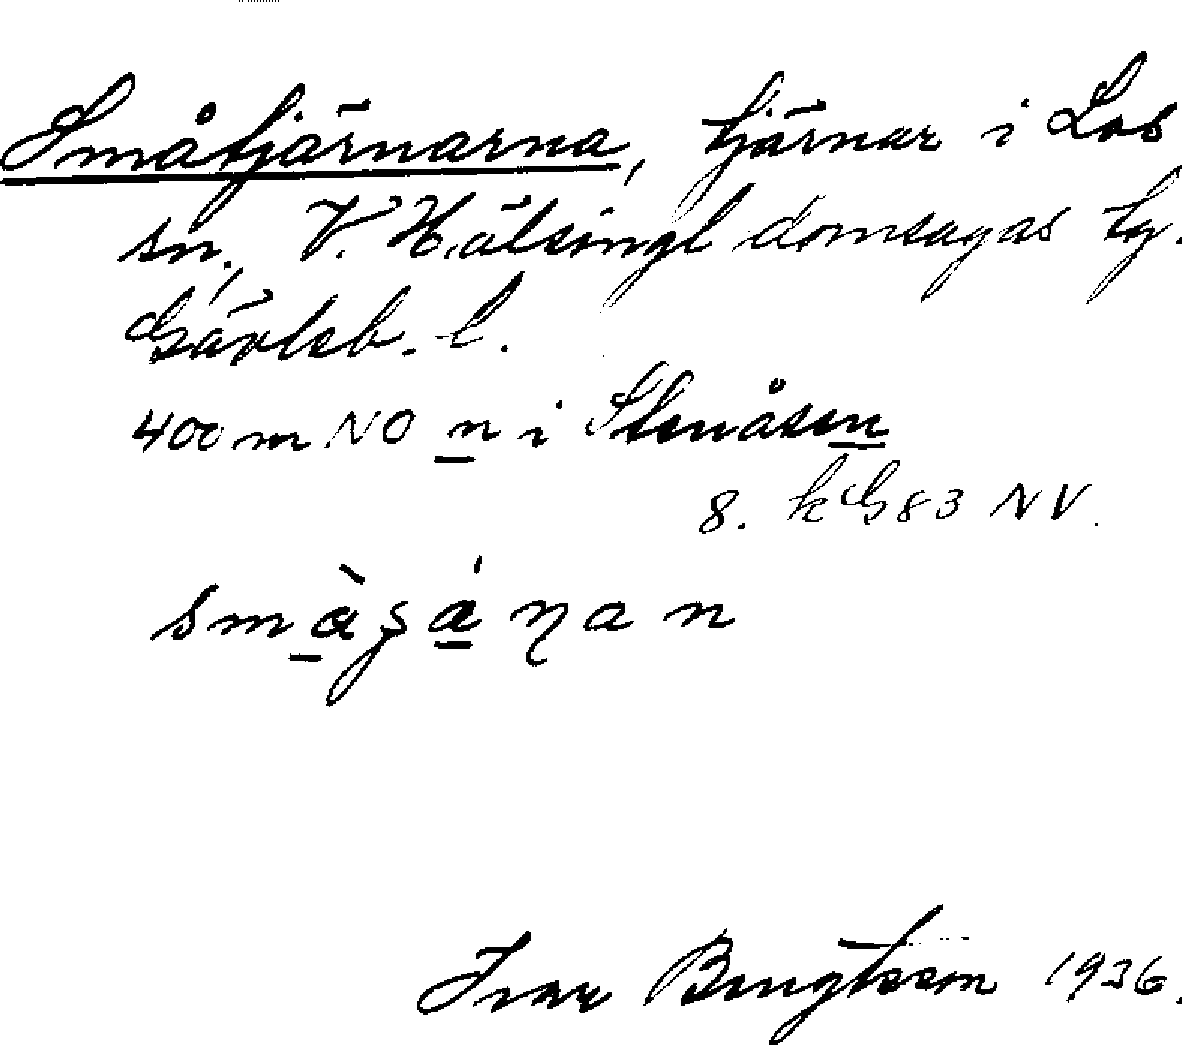 Småtjärnarna, tjärnar i Los
sn, V. Hälsingl domsagas tg.
Gävleb. l.
400 m NO n i Stenåsen
8. k G 83 NV.
Ivar Bengtsson 1936.